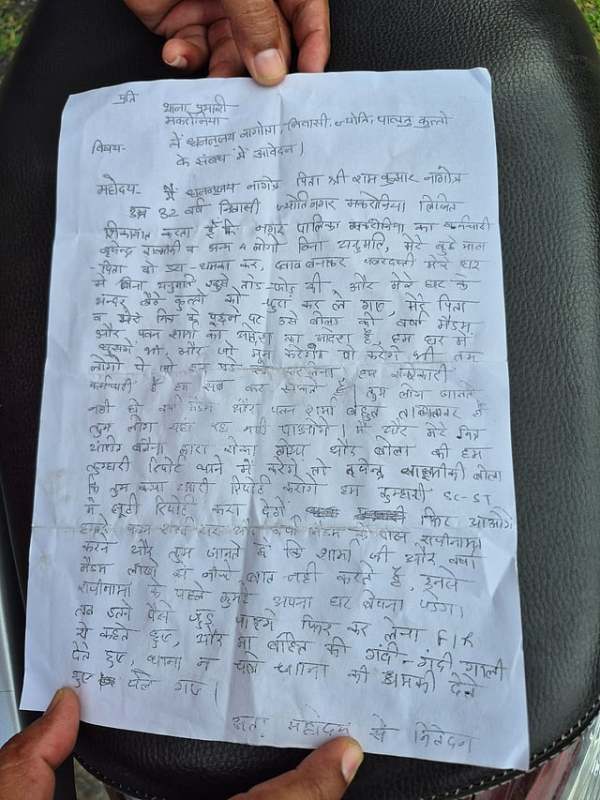 प्रति
थाना प्रभारी
मकरोनिया
विषय- में धनन्जय नागोत्रा, निवासी ज्योति, पालतू कुत्तो
के संबंध में आवेदन।
महोदय- मैं धनन्जय नागोत्र पिता श्री राम कुमार नागोत्र
उम्र 32 वर्ष निवासी ज्योतिनगर मकरोनिया लिखित
शिकायत करता हूँ कि नगर पालिका मकरोनिया का कर्मचारी
व अन्य 4 लोगो बिना अनुमति, मेरे बूढ़े माता
-पिता को डरा धमका कर, दवाव बनाकर जबरदस्ती मेरे घर
में बिना अनुमति घुसे तोड़-फोड़ की और मेरे घर के
अन्दर बैठे कुत्तो को चुरा कर ले गए, मेरे पिता
व मेरे मित्र के पूछने पर उसे बोला की वर्षा मैडम
और पवन शर्मा का आदेश है, हम घर में
घुसेगें भी, और जो मन करेगा वो करेगे भी तुम
लोगो से जो बन पड़े कर लेना, हम सरकारी
कर्मचारी है हम सब कर सकते है। तुम लोग जानते
नही हो वर्षा मैडम और पवन शर्मा बहुत ताकतवर है
तुम लोग यहां रह नहीं पाओगे। में और मेरे मित्र
द्वारा रोका गया और बोला की हम
तुम्हारी रिपोर्ट थाने में करेगे तो वाल्मीकी बोला
कि तुम क्या हमारी रिपोर्ट करोगे हम तुम्हारी SC-ST
में झूठी रिपोर्ट करा देगें फिर आओगे
हमारे पवन शर्मा और वर्षा मैडम के पास राजीनामा
करने और तुम जानते हो कि शर्मा जी और वर्षा
मैडम लाखो से नीचे बात नही करते है, इनसे
राजीनामा के पहले तुम्हे अपना घर बेचना पड़ेगा।
तब इतने पैसे जुड़ पाएगे फिर कर लेना FIR
ये कहते हुए, और मां बहिन की गंदी-गंदी गाली
देते हुए, थाना न चले थाना की धमकी देते
हुए चले गए।
अतः महोदय से निवेदन